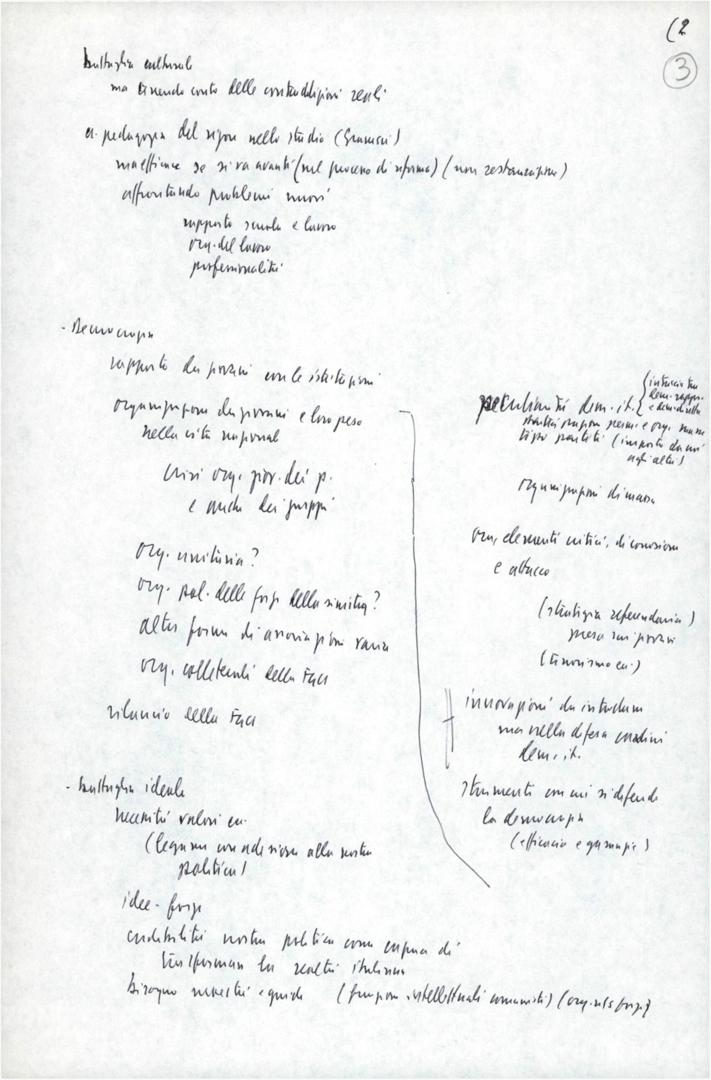 (2
3
battaglia culturale
ma tenendo conto delle contraddizioni reali
a. pedagogia del rigore nello studio (Gramsci)
ma efficace se si va avanti (nel processo di riforma) (non restaurazione)
affrontando problemi nuovi
rapporto scuola e lavoro
org. del lavoro
professionalità
- Democrazia
rapporto dei giovani con le istituzioni
organizzazioni dei giovani e loro peso
nella vita nazionale
crisi org. giov. dei p.
e anche dei gruppi
org. unitaria?
org. pol. delle forze della sinistra?
altre forme di associazioni varie
org. collaterali della FGCI
rilancio della FGCI
peculiarità dem. it.
intreccio tra
dem. rappr.
e dem. diretta
tipo partiti (imposto da noi
agli altri)
organizzazioni di massa
ora, elementi critici, di corrosione
e attacco
(strategia referendaria)
presa sui giovani
(terrorismo ecc.)
innovazioni da introdurre
ma nella difesa cardini
dem. it.
strumenti con cui si difende
la democrazia
(efficacia e garanzie)
- battaglia ideale
necessità valori ecc.
(legame con adesione alla nostra
politica)
idee-forza
credibilità nostra politica come capace di
trasformare la realtà italiana
bisogno maestri e guide (funzione intellettuali comunisti)